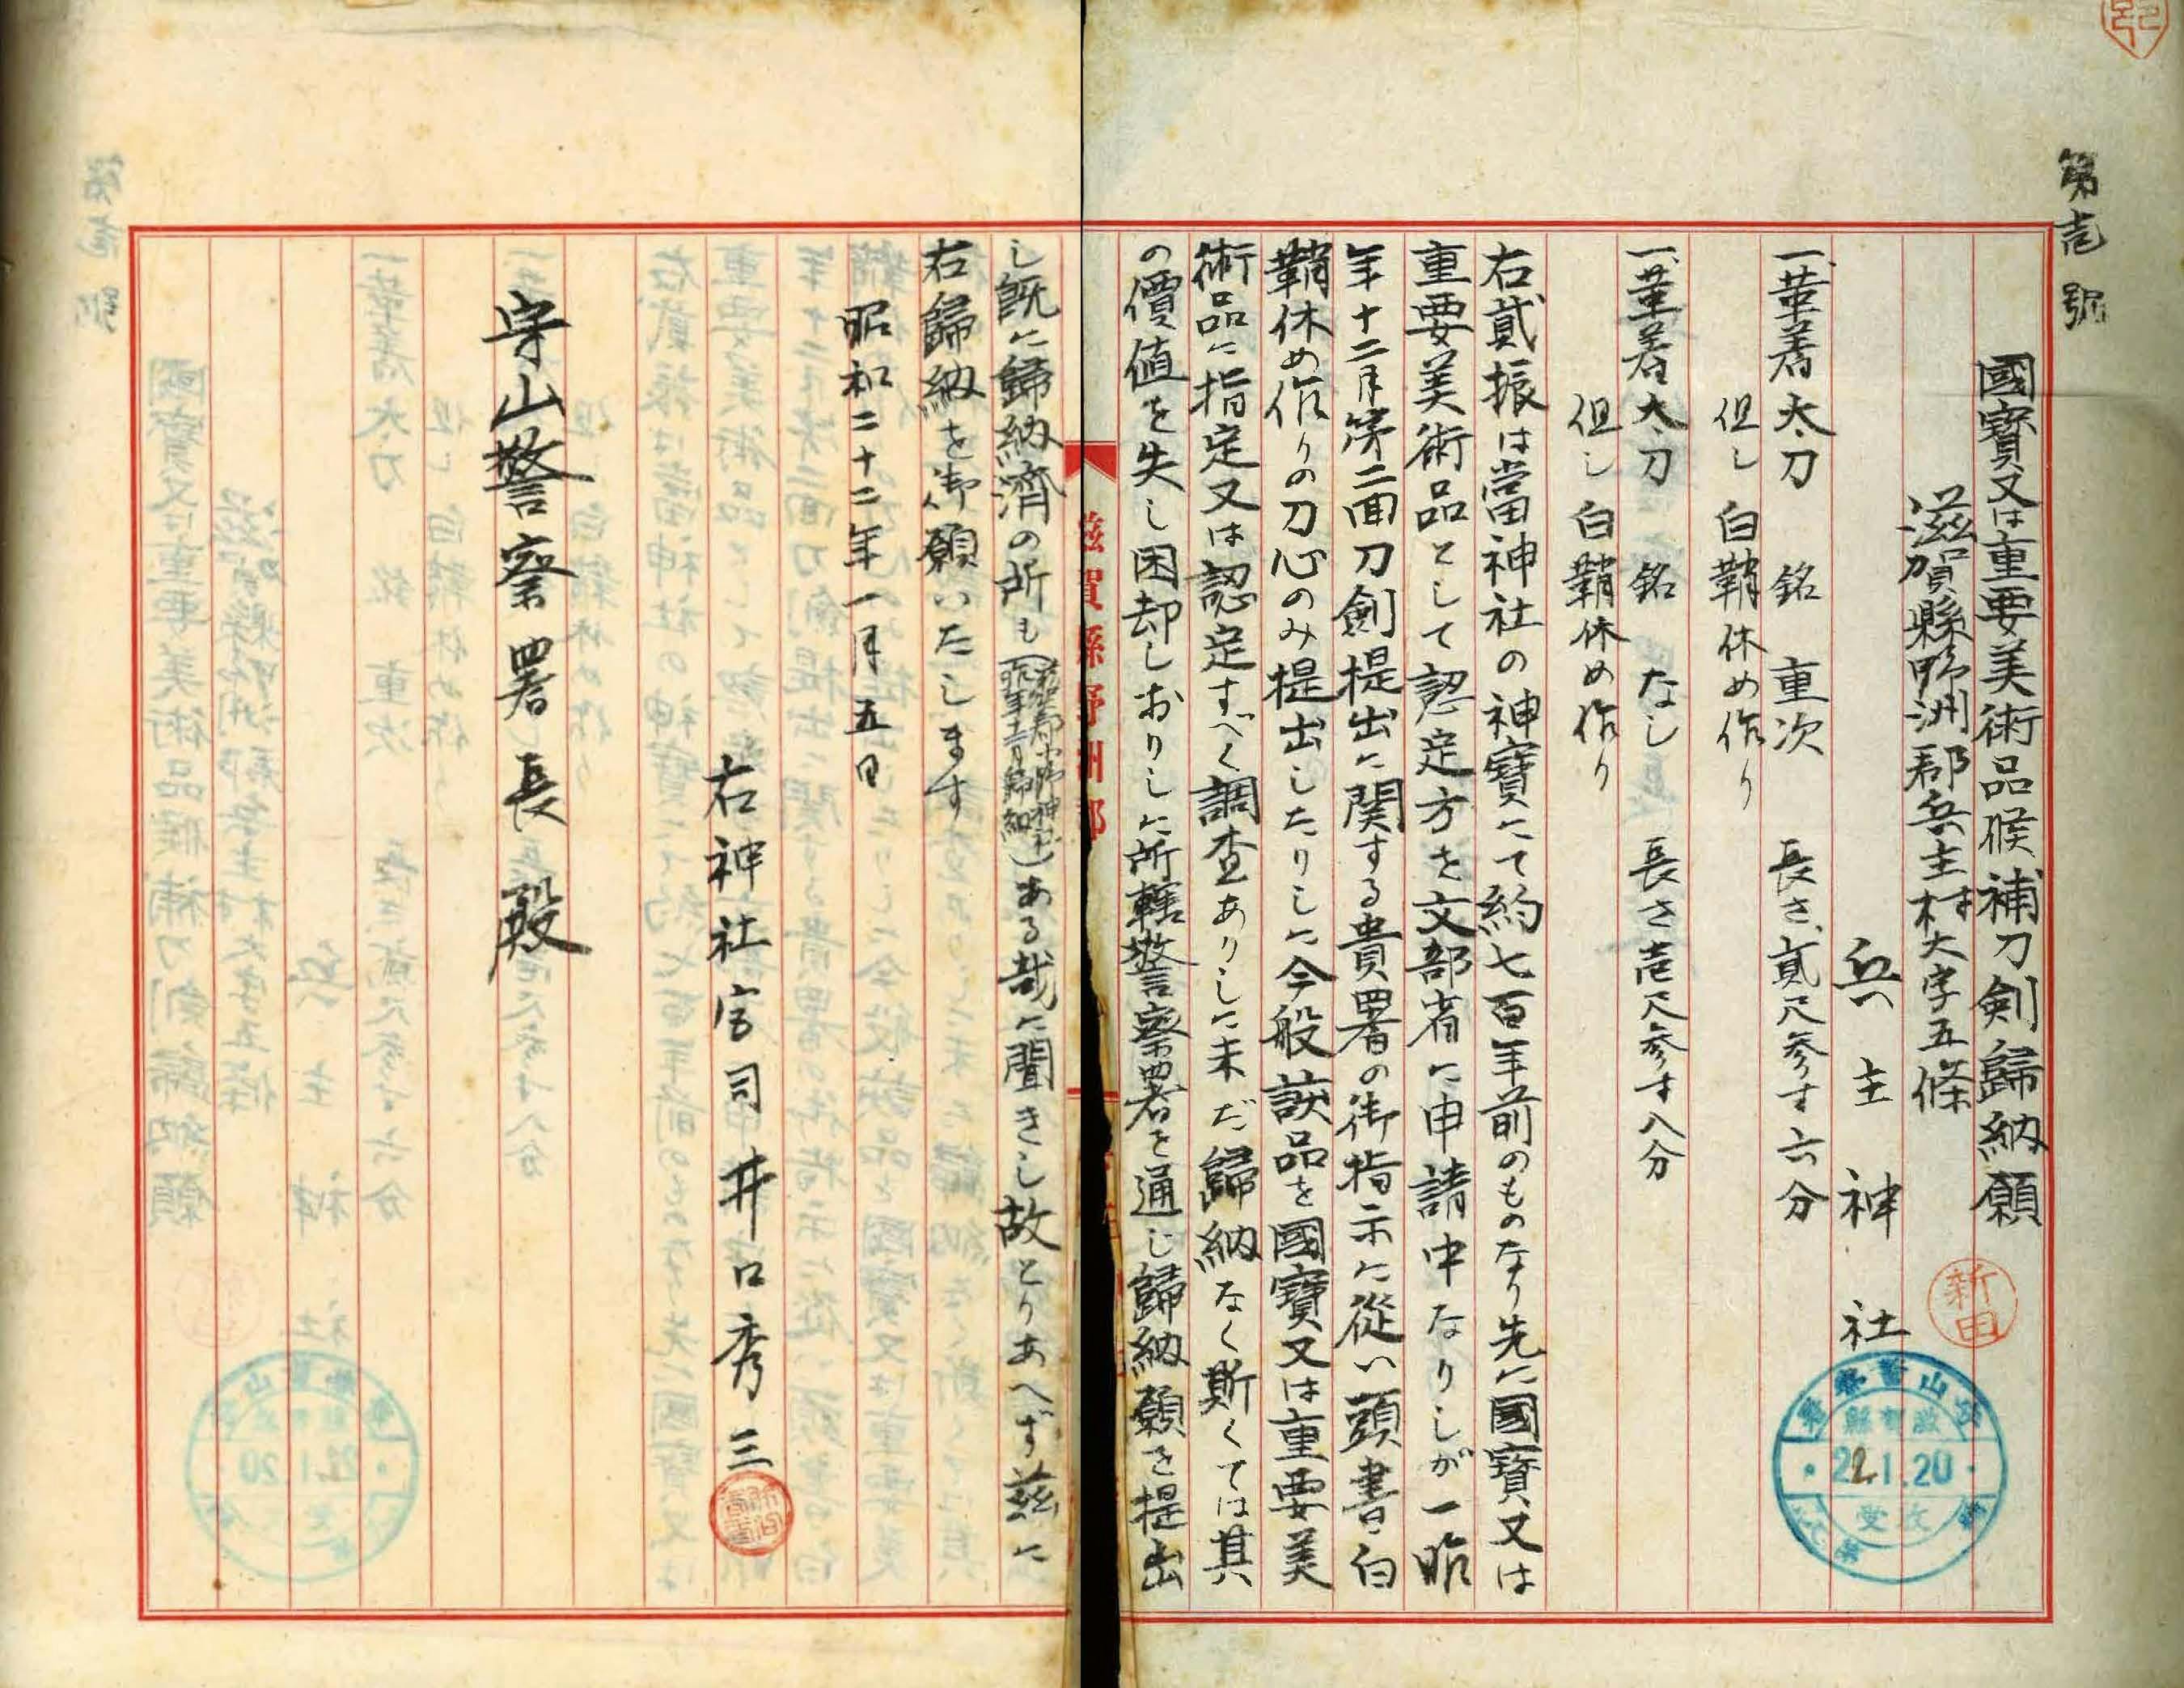 第壱號
國寶又は重要美術品候補刀剣歸納願
滋賀縣野洲郡兵主村大字五條
兵主神社
新田
守山警察署
滋賀縣
22.1.20
受
一、革着太刀 銘 重次 長さ貳尺参寸六分
但し白鞘休め作り
一、革着太刀 銘 なし 長さ壱尺参寸八分
但し白鞘休め作り
右貳振は當神社の神寶にて約七百年前のものなり先に國寶又は
重要美術品として認定方を文部省に申請中なりしが一昨
年十二月第二回刀劍提出に関する貴署の御指示に從い頭書白
鞘休め作りの刀心のみ提出したりしに今般該品を國寶又は重要美
術品に指定又は認定すべく調査ありしに未だ歸納なく斯くては其
の價値を失し困却しおりしに所轄警察署を通じ歸納願を提出
滋賀縣野洲郡
し既に歸納濟の所も(
昨年十二月歸納)ある哉に聞きし故とりあへず茲に
右歸納を御願いたします
昭和二十二年一月五日
右神社宮司井口秀三
守山警察署長殿